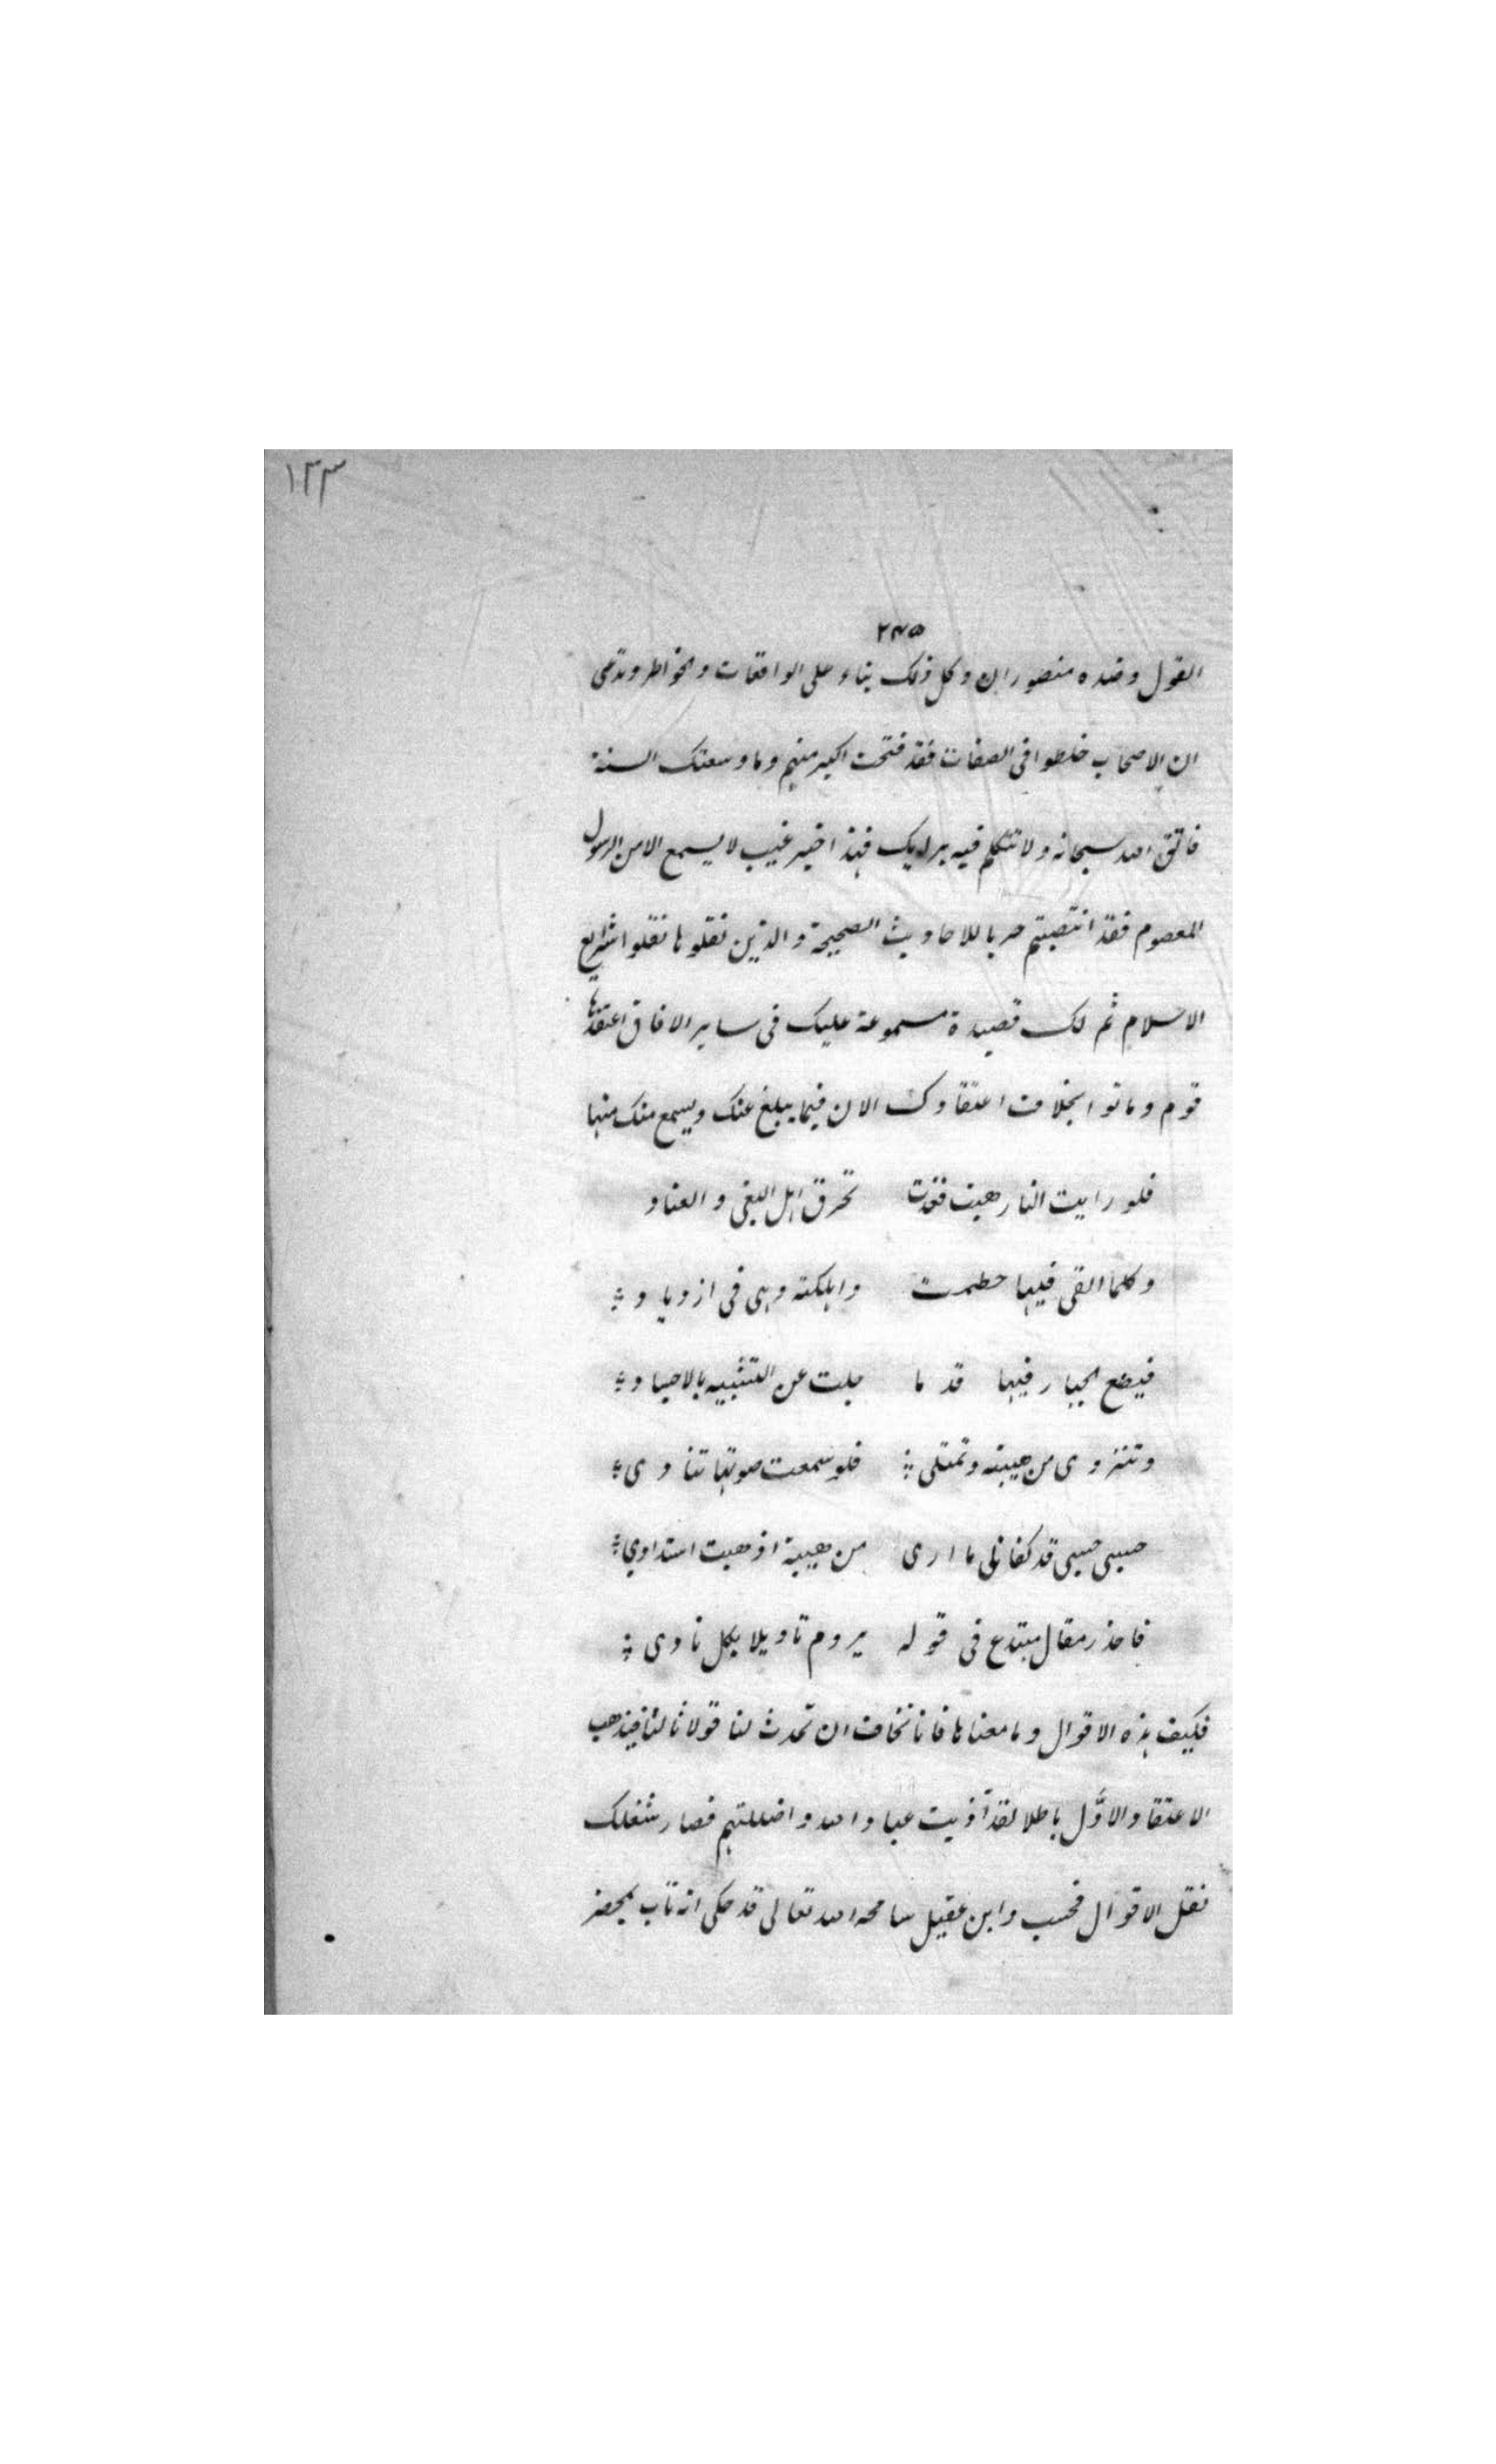 ١٣٣
٢٤٥
القول وضده منصوران وكل ذلك بناء على الواقعات والخواطر وتدعى
ان الاصحاب خلطوا فى الصفات فقد فتحت اكبر منهم وما وسعتك السنة
فاتق الله سبحانه ولا تتكلم فيه برايك فهذا خبر غيب لا يسمع الا من الرسول
المعصوم فقد انتصبتم حربا للاحاديث الصحيحة والذين نقلوها نقلوا شرايع
الاسلام ثم لك قصيدة مسموعة عليك فى ساير الافاق اعتقدها
قوم وماتوا بخلاف اعتقادك الان فيما يبلغ عنك ويسمع منك منها
فلو رايت النار هبت فغدت تحرق اهل البغى والعناد
وكلما القى فيها حطمت واهلكته وهى فى ازدياد
فيضع الجبار فيها قدما جلت عن التشبيه بالاجساد
وتنزوى من هيبته وتمتلى فلو سمعت صوتها تنادى
حسبى حسبى قد كفانى ما ارى من هيبة اذهبت اشتدادى
فاحذر مقال مبتدع فى قوله يروم تاويلا بكل نادى
فكيف هذه الاقوال وما معناها فانا نخاف ان تحدث لنا قولا ثالثا فيذهب
الاعتقاد الاوّل باطلا لقد آذيت عباد الله واضللتهم فصار شغلك
نقل الاقوال فحسب وابن عقيل سامحه الله تعالى قد حكى انه تاب بمحضر